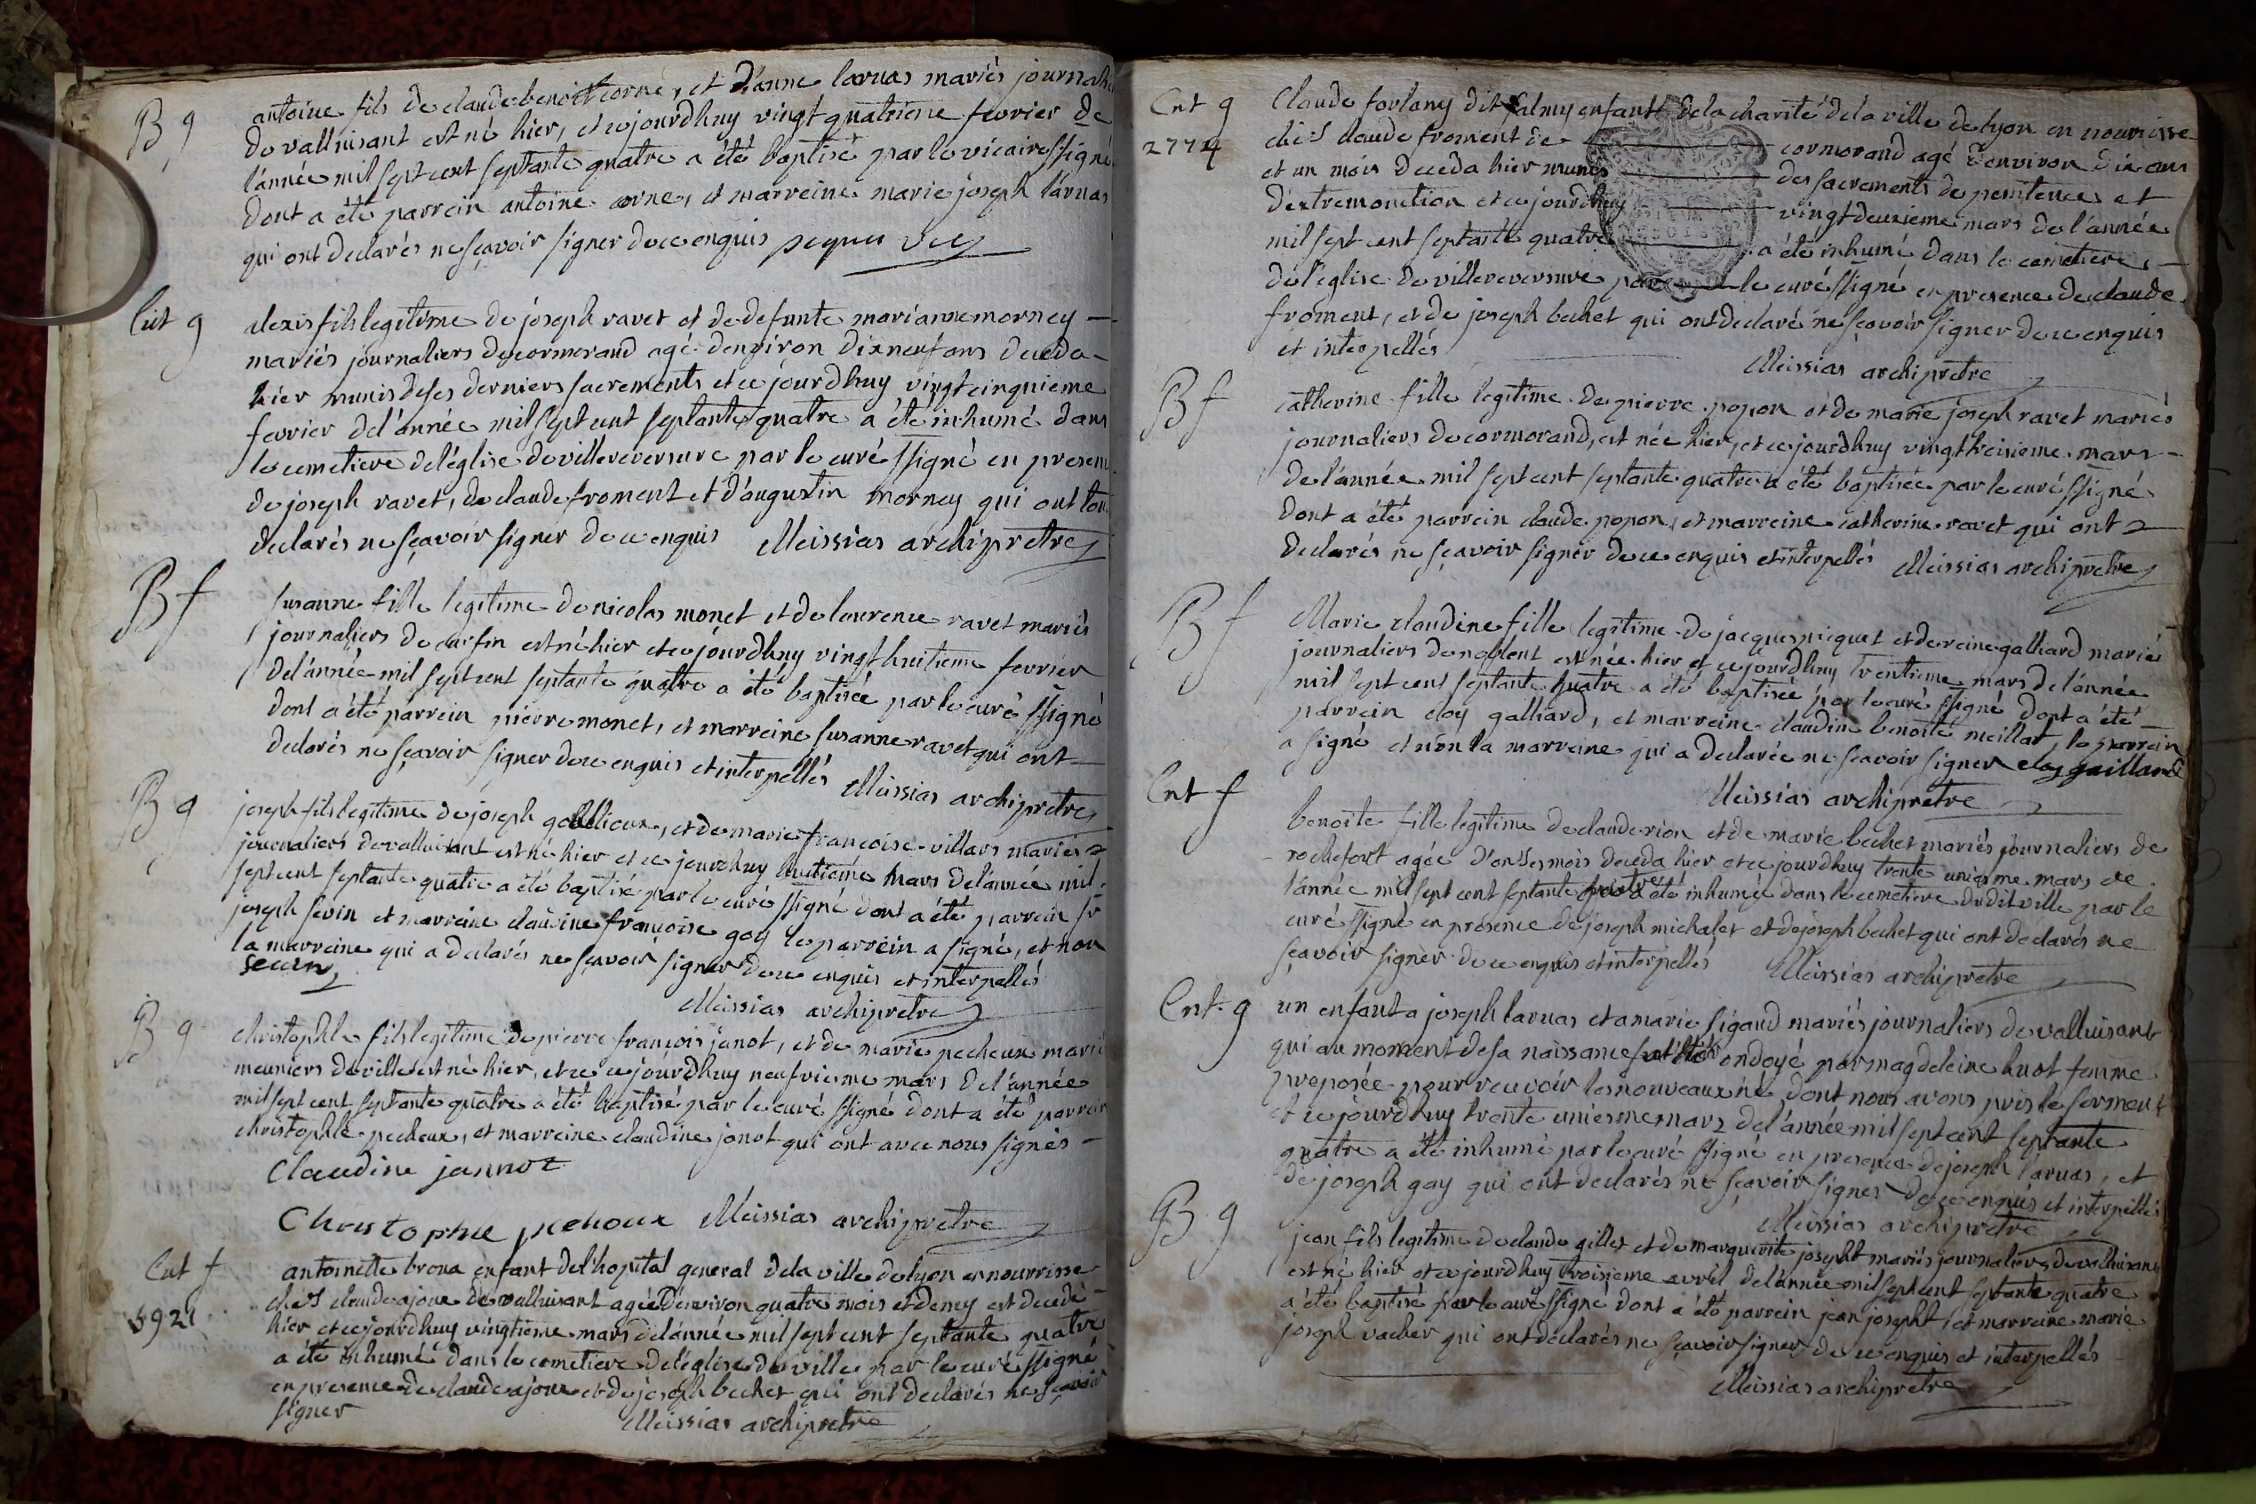 B g
antoine fils de claude benoit corne, et d'anne laruas mariés journali
de valluisant est né hier, et cejourdhuy vingt quatrieme fevrier de
l'année mil sept cent septante quatre a été baptisé par le vicaire ssigné
dont a été parrein antoine corne, et marreine marie joseph laruas
qui ont declarés ne sçavoir signer de ce enquis
Ent g
alexis fils legitime de joseph ravet et de defunte marianne morney
mariés journaliers de cormorand agé d'environ dix neuf ans deceda
hier munis de ses derniers sacrements et ce jourdhuy vingt cinquieme
fevrier de l'année mil sept cent septante quatre a été inhumé dans
le cemetiere de l'église de villereversure par le curé ssigné en presen
de joseph ravet, de claude froment et d'augustin morney qui ont tou
declarés ne sçavoir signer de ce enquis Meissias archipretre
B f
susanne fille legitime de nicolas monet et de laurence ravet mariés
journaliers de est né hier et cejourdhuy vingt huitieme fevrier
de l'année mil sept cent septante quatre a été baptisée par le curé ssigné
dont a été parrein pierre monet, et marreine susanne ravet qui ont
declarés ne sçavoir signer de ce enquis et interpellés Meissias archipretre
B g
joseph fils legitime de joseph et de marie françoise villars mariés
journaliers de valluisant est né hier et ce jourdhuy huitieme mars de l'année mil
sept cent septante quatre a été baptisé par le curé ssigné dont a été parrein sr
joseph sevin et marreine claudine françoise goy le parrein a signé, et non
la marreine qui a declarés ne sçavoir signer de ce enquis et interpellés
Meissias archipretre
B g
christophle fils legitime de pierre françois janot, et de marie pecheux marié
meuniers de ville est né hier, et ce cejourdhuy neufvieme mars de l'année
mil sept cent septante quatre a été baptisé par le curé ssigné dont a été parrein
christophle pecheux, et marreine claudine jonot qui ont avec nous signés
Claudine jannot
Christophle pechoux Meissias archipretre
Ent f
5921
antoinette brona enfant de l'hopital general de la ville de lyon en nourrisse
chés claude ajoux de valluisant agée d'environ quatre mois et demy est decedé
hier et cejourdhuy vingtieme mars de l'année mil sept cent septante quatre
a été inhumé dans le cemetiere de l'église de ville par le curé ssigné
en presence de claude ajoux et de joseph bechet qui ont declarés ne sçavoir
signer Meissias archipretre
Ent g
2774
Claude forlany dit enfant de la charité de la ville de lyon en nourrisse
chés claude froment de cormorand agé d'environ dix ans
et un mois deceda hier munis des sacrements de penitence et
d'extremonction et cejourdhuy vingt deuxieme mars de l'année
mil sept cent septante quatre a été inhumé dans le cemetiere
de l'église de villereversure par le curé ssigné en presence de claude
froment, et de joseph bechet qui ont declaré ne sçavoir signer de ce enquis
et interpellés Meissias archipretre
B f
catherine fille legitime de pierre popon et de marie joseph ravet mariés
journaliers de cormorand, est née hier, et ce jourdhuy vingt troisieme mars
de l'année mil sept cent septante quatre a été baptisée par le curé ssigné
dont a été parrein claude popon, et marreine catherine ravet qui ont
declarés ne sçavoir signer de ce enquis et interpellés Meissias archipretre
B f
Marie claudine fille legitime de jacques picquet et de reine galliard mariés
journaliers de est née hier et cejourdhuy trentieme mars de l'année
mil sept cent septante quatre a été baptisée par le curé ssigné dont a été
parrein eloy galliard, et marreine claudine benoite meillat, le parrein
a signé et non la marreine qui a declarée ne sçavoir signer eloy gailliard
Meissias archipretre
Ent f
benoite fille legitime de claude rion et de marie bechet mariés journaliers de
rochefort agée d'onses mois deceda hier et ce jourdhuy trente unieme mars de
l'année mil sept cent septante quatre a été inhumée dans le cemetiere dudit ville par le
curé ssigné en presence de joseph michalet et de joseph bechet qui ont declarés ne
sçavoir signer de ce enquis et interpellés Meissias archipretre
Ent. g
un enfant a joseph laruas et a marie sigaud mariés journaliers de valluisant
qui au moment de sa naissance fut ondoyé par magdeleine huot femme
preposée pour recevoir les nouveaux né dont nous avons pris le serment
et cejourdhuy trente uniesme mars de l'année mil sept cent septante
quatre a été inhumé par le curé ssigné en presence de joseph laruas, et
de joseph gay qui ont declarés ne sçavoir signer de ce enquis et interpellés
Meissias archipretre
B. g
jean fils legitime de claude gillet et de marguerite josepht mariés journaliers de valluisant
est né hier et cejourdhuy troisieme avril de l'année mil sept cent septante quatre
a été baptisé par le curé ssigné dont a été parrein jean josepht, et marreine marie
joseph vacher qui ont declarés ne sçavoir signer de ce enquis et interpellés
Meissias archipretre